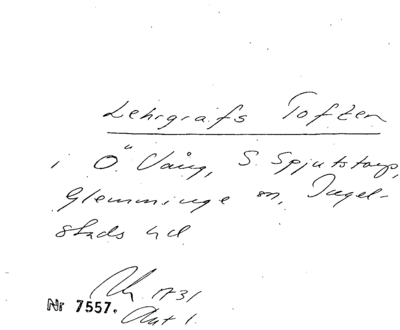 Lehrgrafs Toften
i Ö. Vång, S. Spjutstorp,
Glemminge sn, Ingel-
stads hd
1731
Nr 7557. Akt 1.